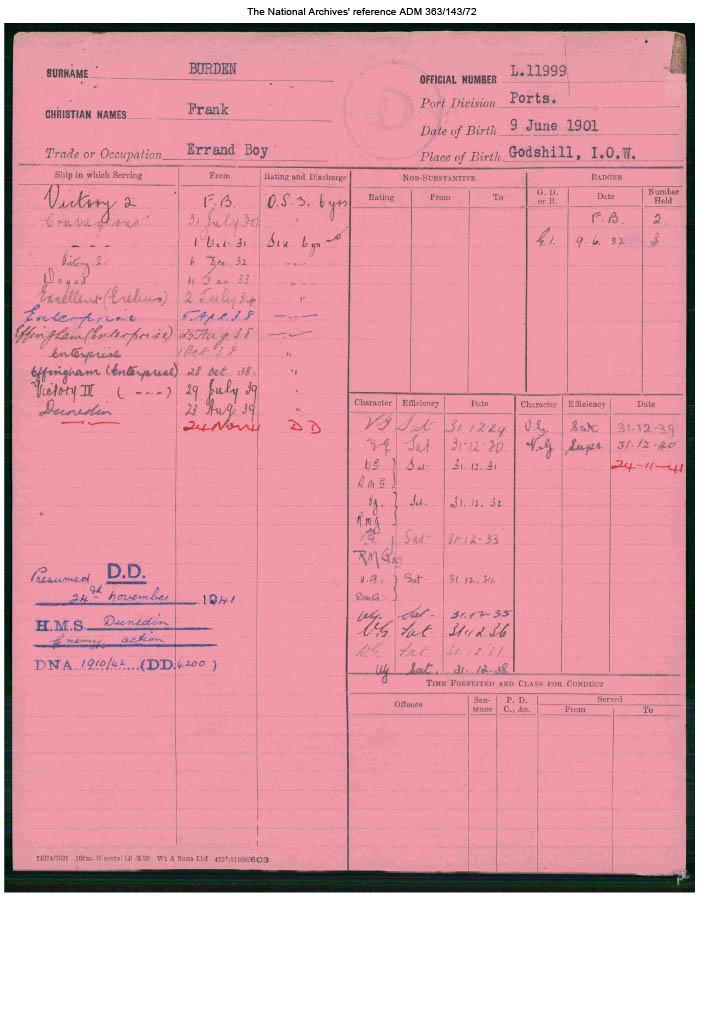 The National Archives' reference ADM 363/143/72
SURNAME BURDEN
OFFICIAL NUMBER L.11999
CHRISTIAN NAMES Frank
Port Division Ports.
Date of Birth 9 June 1901
Trade or Occupation Errand Boy
Place of Birth Godshill, I.O.W.
D
Ship in which Serving From Rating and Discharge
Victory 2 F.B. O.S. 3. 6 yrs
Courageous 31 July 30 "
- - - 1 Oct. 31
Victory 2. 6 Dec 32
11 Jan 33
Excellent (Erebus) 2 July 34 "
Enterprise 5 Apl 38
Effingham (Enterprise) 25 Aug 38
Enterprise 1 Oct 38 "
Effingham (Enterprise) 28 Oct 38. "
Victory III ( - - - ) 29 July 39 "
Dunedin 23 Aug 39 "
24 Nov 41 DD
Presumed D.D.
24th November 1941
H.M.S. Dunedin
Enemy action
DNA 1910/42 (DD 4200)
NON-SUBSTANTIVE
Rating From To
BADGES
G. D. or R. Date Number Held
F.B. 2.
G.1. 9.6.32 3
Character Efficiency Date Character Efficiency Date
VG Sat 31.12.29 V.G. Sat 31.12.39
VG Sat 31-12-30 V.G Super 31.12.40
VG Sat 31.12.31 24-11-41
RMG
VG. Sat. 31.12.32
RMG
VG. Sat 31-12-33
RMG
V.G. Sat. 31.12.34.
RMG.
VG. Sat. 31.12.35
VG Sat 31.12.36
VG Sat 31.12.37
VG Sat. 31.12.38.
TIME FORFEITED AND CLASS FOR CONDUCT
Offence Sentence P. D. C., &c. Served
From To
Wt & Sons Ltd